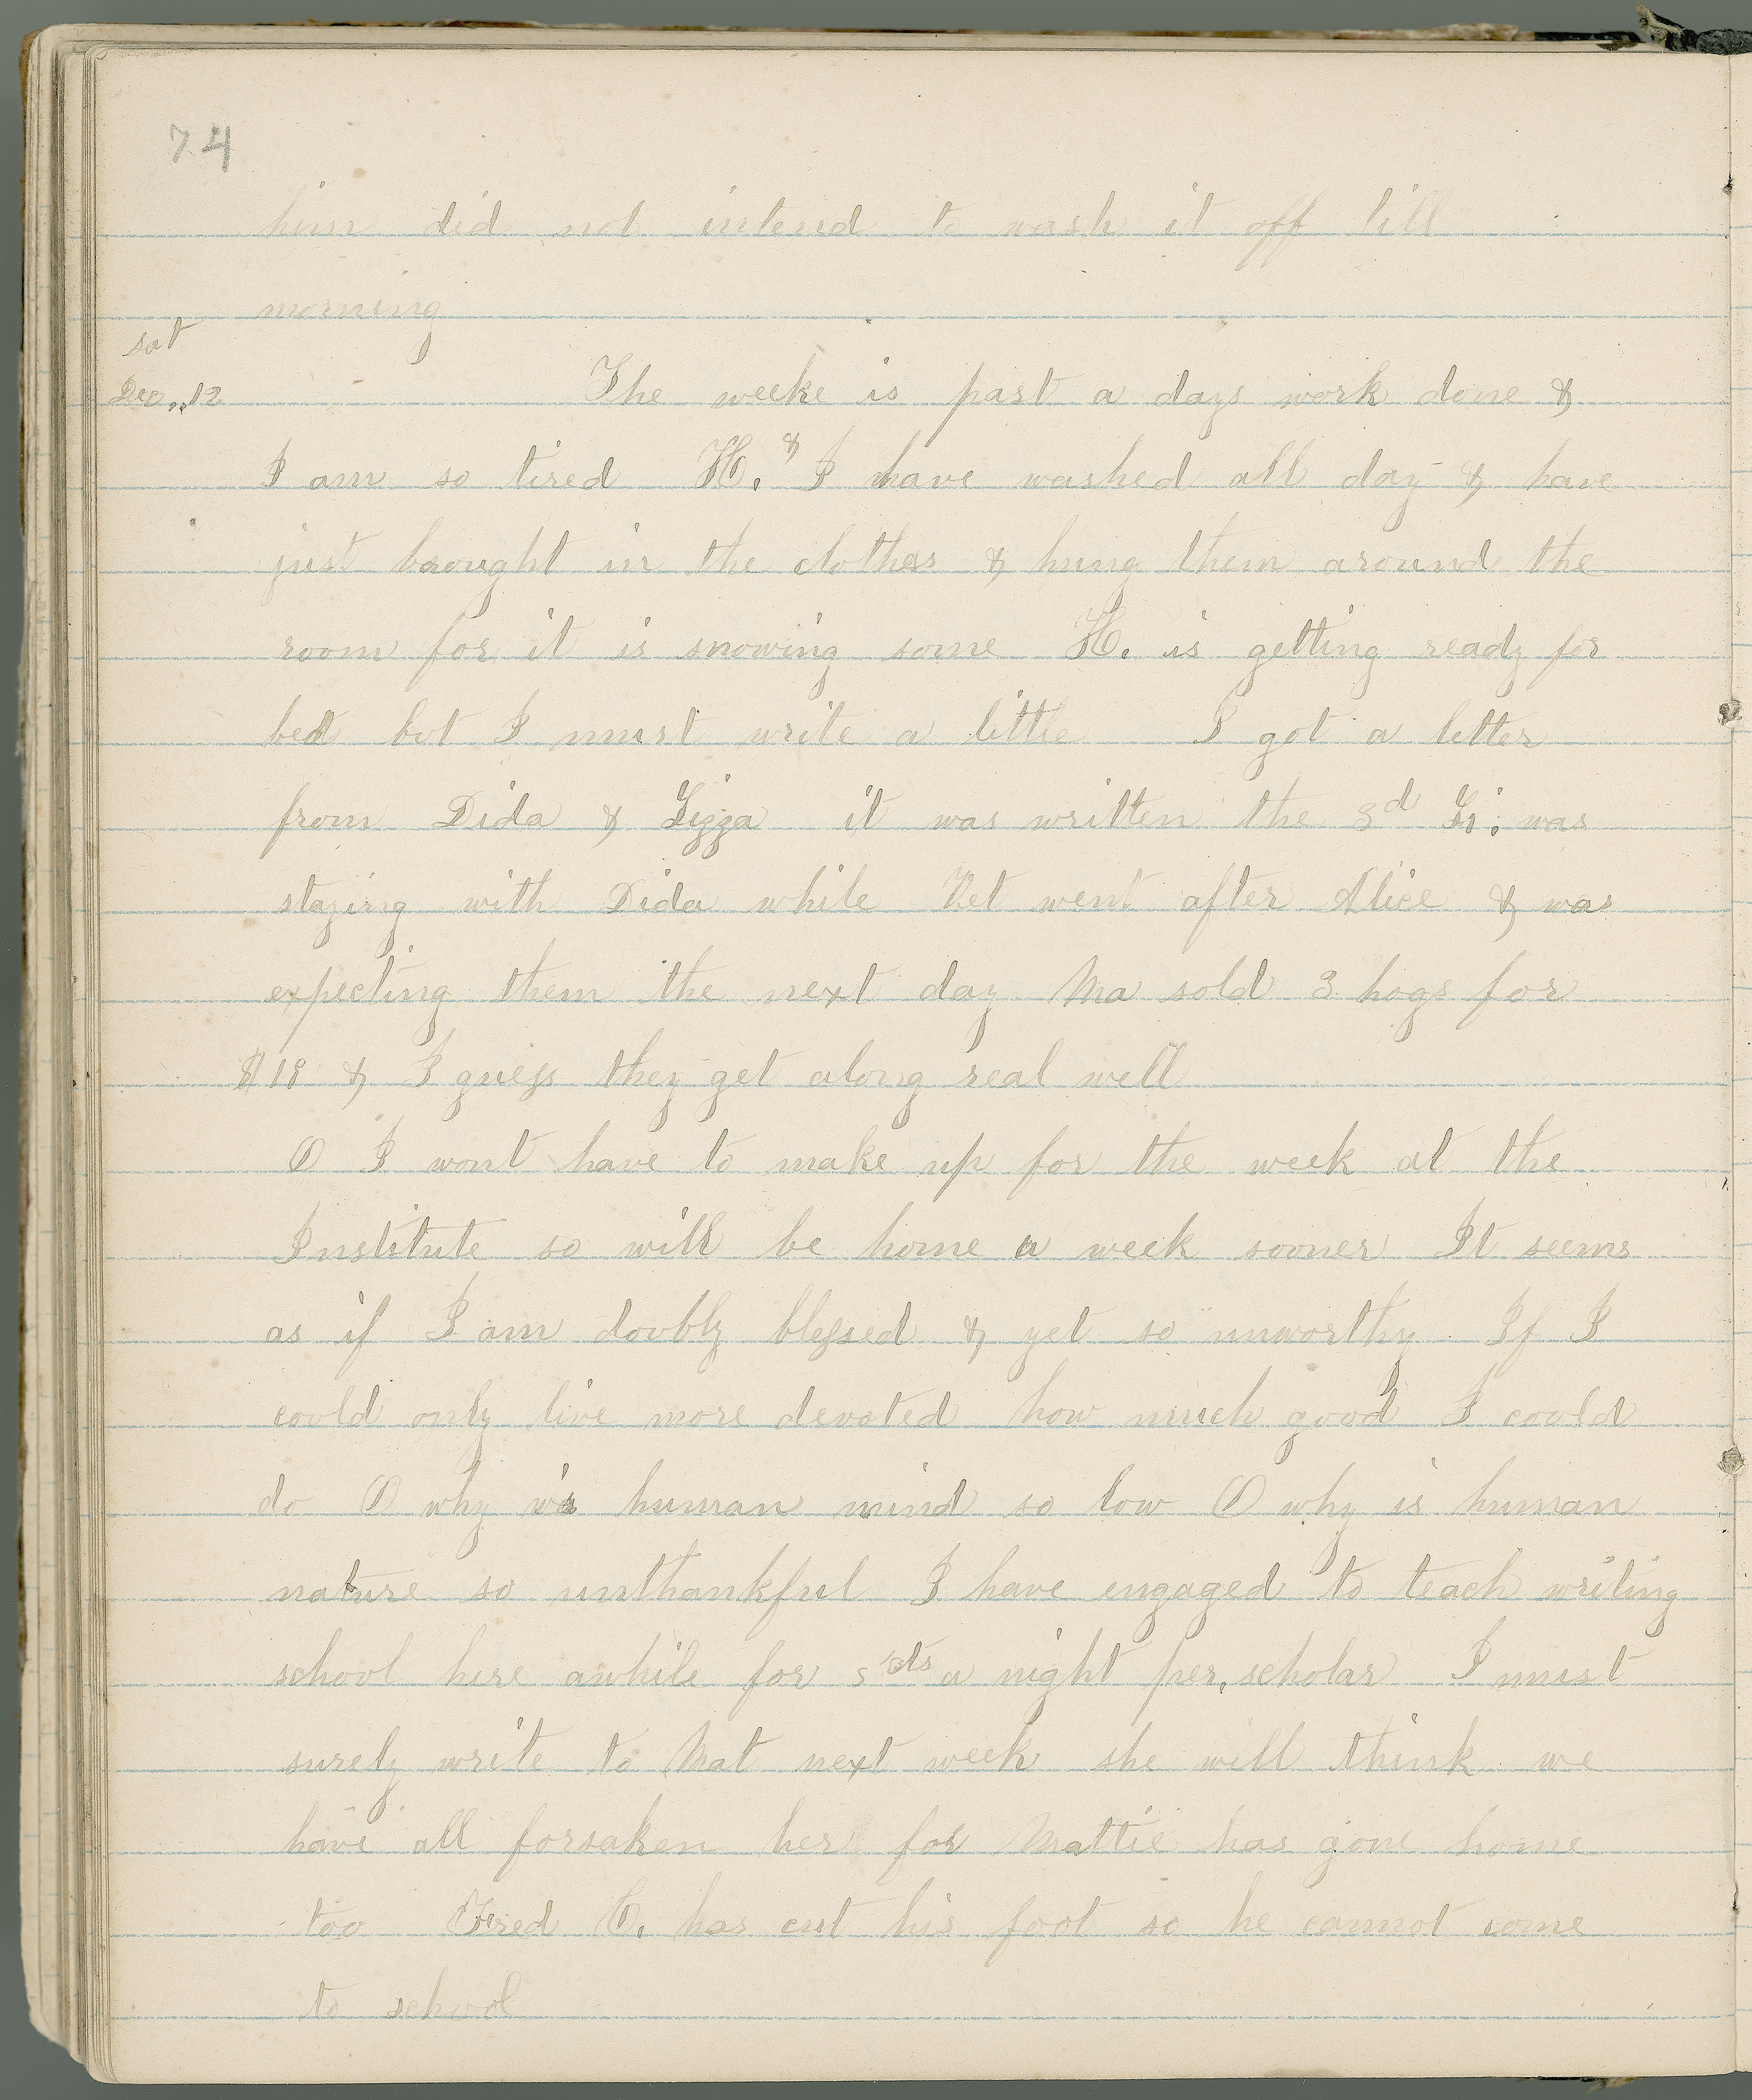 74
him did not intend to wash it off till
morning
sat
Dec,,12 The weeke is past a days work done &
I am so tired H. & I have washed all day & have
just brought in the clothes & hung them around the
room for it is snowing some H. is getting ready for
bed but I must write a little I got a letter
from Dida & Lizza it was written the 3d Li. was
staying with Dida while Vet went after Alice & was
expecting them the next day Ma sold 3 hogs for
$18 & I guess they get along real well
O I wont have to make up for the week at the
Institute so will be home a week sooner It seems
as if I am doubly blessed & yet so unworthy If I
could only live more devoted how much good I could
do O why is human mind so low O why is human
nature so unthankful I have engaged to teach writing
school here awhile for 5 cts a night per. scholar I must
surely write to Mat next week she will think we
have all forsaken her for Mattie has gone home
too Fred O. has cut his foot so he cannot come
to school